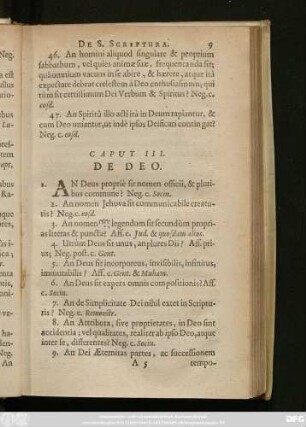 DE S. SCRIPTURA. 9
46. An homini aliquod singulare & proprium
sabbathum, vel quies animæ suæ, frequentanda sit;
quâ omnium vacans in se abire, & hærere, atque ita
expectare debeat cœlestem à Deo enthusiasmum, qui
tùm sit certissimum Dei Verbum & Spiritus? Neg. c.
eosd.
47. An Spiritu illo acti ità in Deum rapiuntur, &
cum Deo uniantur, ut indè ipsos Deificati contingat?
Neg. c. eosd.
CAPUT III.
DE DEO.
1. AN Deus propriè sit nomen officii, & pluri-
bus commune? Neg. c. Socin.
2. An nomen Jehova sit communicabile creatu-
ris? Neg. c. eosd.
3. An nomen legendum sit secundùm propri-
as literas & puncta? Aff. c. Jud. & quosdam alios.
4. Utrùm Deus sit unus, an plures Dii? Aff. pri-
us; Neg. post. c. Gent.
5. An Deus sit incorporeus, invisibilis, infinitus,
immutabilis? Aff. c. Gent. & Muham.
6. An Deus sit expers omnis compositionis? Aff.
c. Socin.
7. An de Simplicitate Dei nihil extet in Scriptu-
ris? Neg. c. Remonstr.
8. An Attributa, sive proprietates, in Deo sint
accidentia, vel qualitates, realiter ab ipso Deo, atque
inter se, differentes? Neg. c. Socin.
9. An Dei Æternitas partes, ac successionem
A 5 tempo-